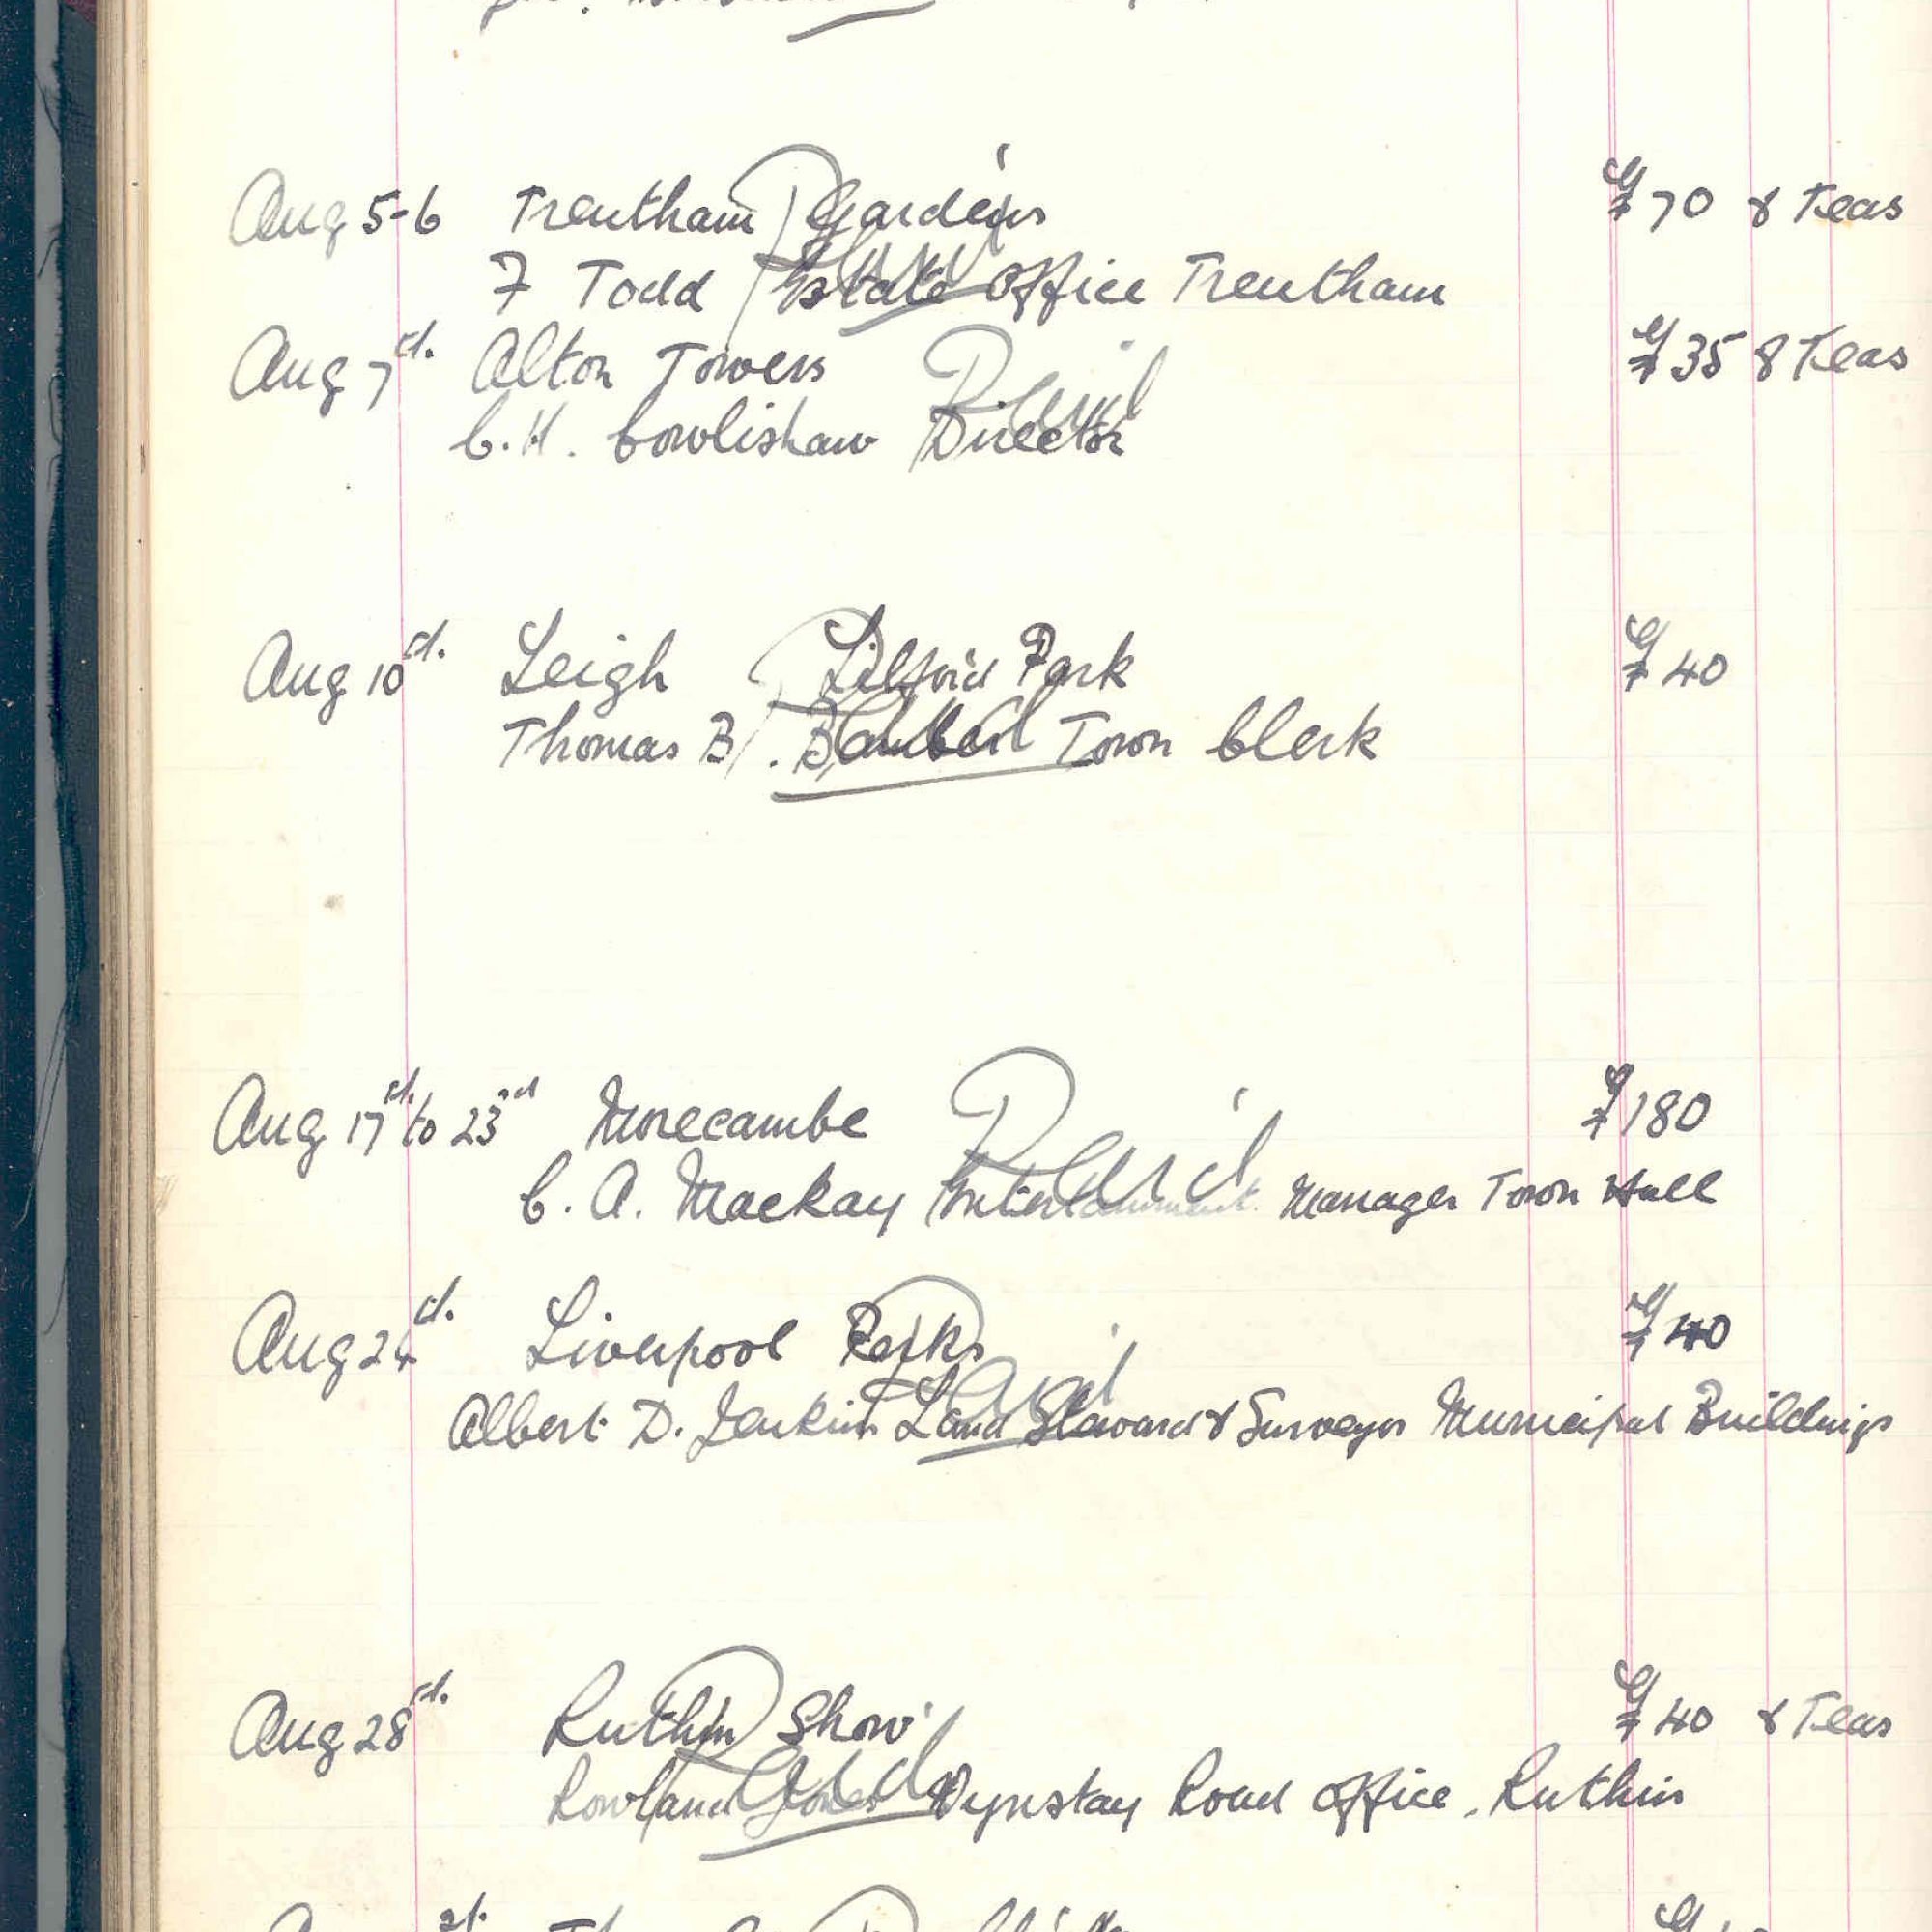 Aug 5-6 Trentham Gardens £70 & Teas
Paid
F Todd Estate Office Trentham
Aug 7th. Alton Towers £35 & Teas
Paid
C.H. Cowlishaw Director
Aug 10th. Leigh Lilford Park £40
Paid
Thomas B. Town Clerk
Aug 17th. to 23rd Morecambe £180
Paid
C. A. Mackay Entertainment Manager Town Hall
Aug 24th. Liverpool Parks £40
Paid
Albert D. Jenkins Land Steward & Surveyor Municipal Buildings
Aug 28th. Ruthin Show £40 & Teas
Paid
Rowland Jones Wynstay Road Office, Ruthin